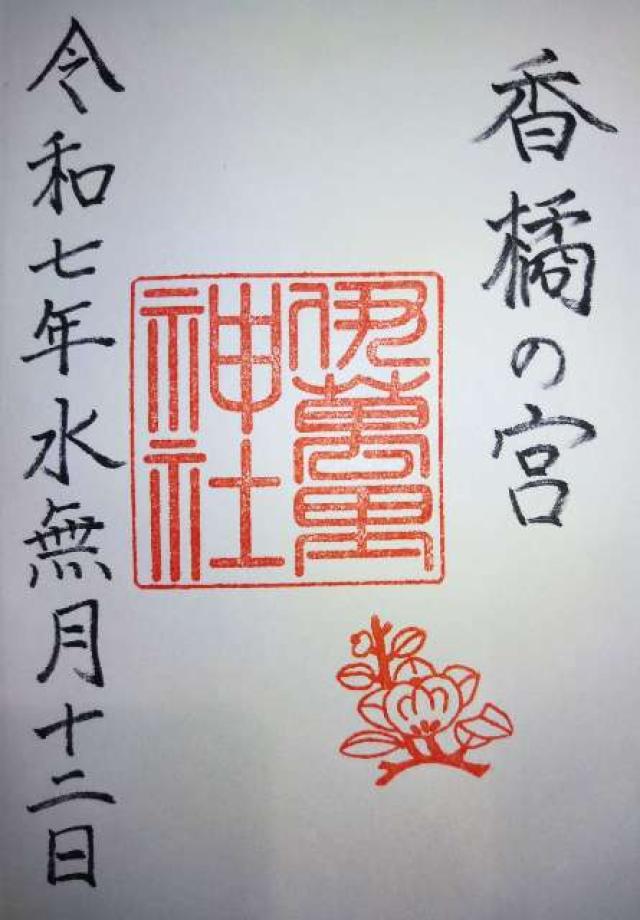 香橘の宮
伊萬里
神社
令和七年水無月十二日